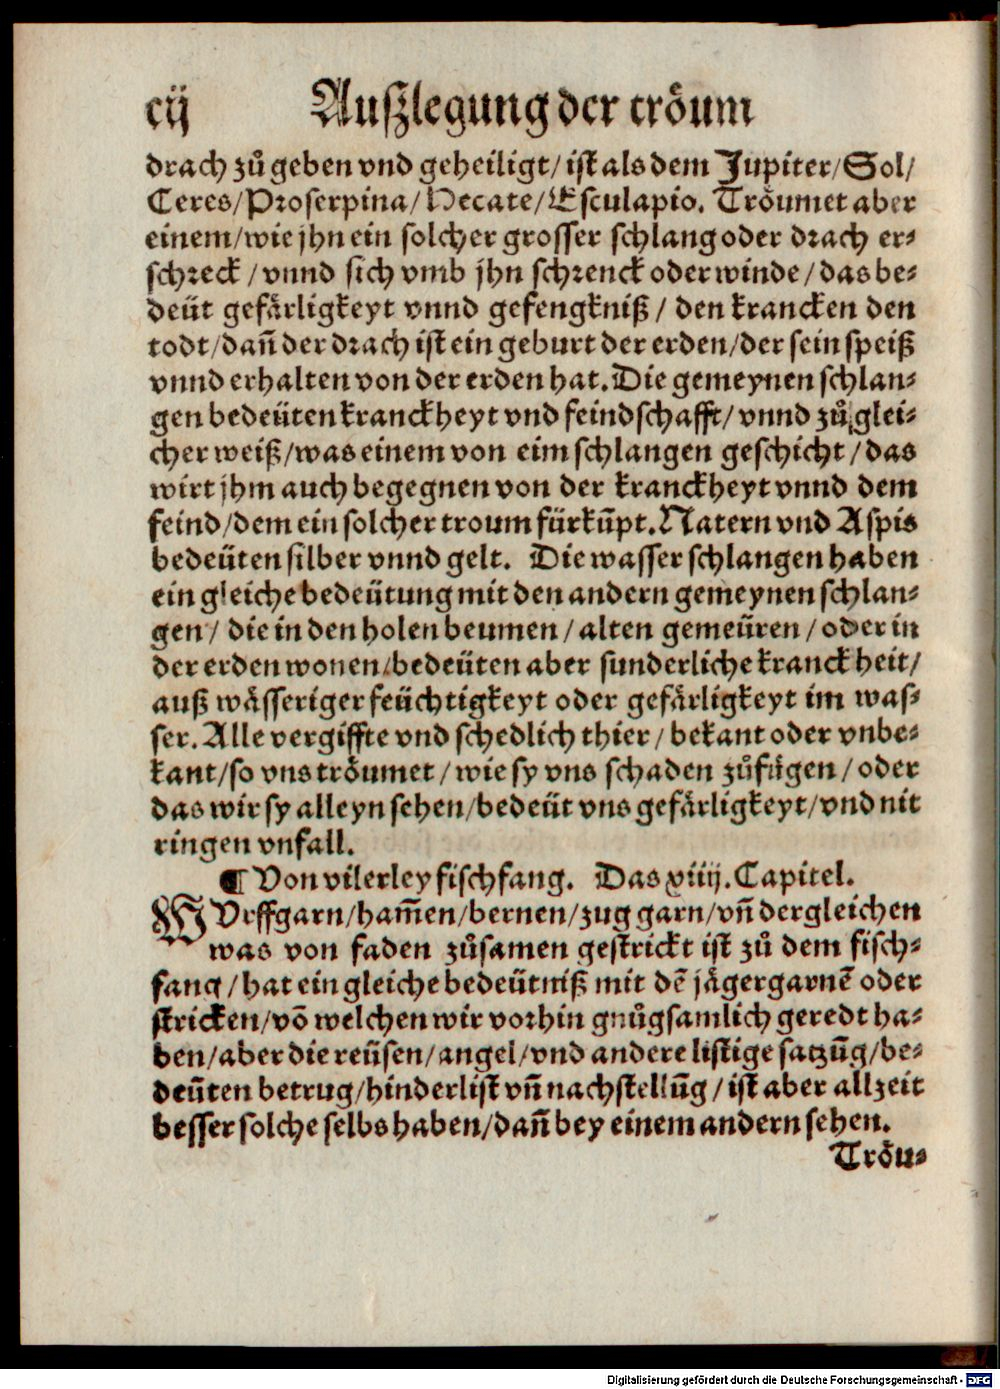 cij Außlegung der troͤum
drach zuͦ geben vnd geheiligt/ ist als dem Jupiter/ Sol/
Ceres/ Proserpina/ Hecate/ Esculapio. Troͤumet aber
einem/ wie jhn ein solcher grosser schlang oder drach er⸗
schreck / vnnd sich vmb jhn schrenck oder winde/ das be⸗
deüt gefaͤrligkeyt vnnd gefengkniß / den krancken den
todt/ dañ der drach ist ein geburt der erden/ der sein speiß
vnnd erhalten von der erden hat. Die gemeynen schlan⸗
gen bedeüten kranckheyt vnd feindschafft/ vnnd zuͦ glei⸗
cher weiß/ was einem von eim schlangen geschicht / das
wirt jhm auch begegnen von der kranckheyt vnnd dem
feind/ dem ein solcher troum fürkũpt. Natern vnd Aspis
bedeüten silber vnnd gelt. Die wasser schlangen haben
ein gleiche bedeütung mit den andern gemeynen schlan⸗
gen / die in den holen beumen / alten gemeüren / oder in
der erden wonen/ bedeüten aber sunderliche kranckheit/
auß waͤsseriger feüchtigkeyt oder gefaͤrligkeyt im was⸗
ser. Alle vergiffte vnd schedlich thier / bekant oder vnbe⸗
kant/ so vns troͤumet / wie sy vns schaden zuͦfuͤgen / oder
das wir sy alleyn sehen/ bedeüt vns gefaͤrligkeyt/ vnd nit
ringen vnfall.
¶ Von vilerley fischfang. Das xiiij. Capitel.
WVrffgarn/ ham̃en/ bernen/ zug garn/ vñ dergleichen
was von faden zuͦsamen gestrickt ist zuͦ dem fisch⸗
fang / hat ein gleiche bedeütniß mit dẽ jaͤgergarnẽ oder
stricken/ võ welchen wir vorhin gnuͦgsamlich geredt ha⸗
ben/ aber die reüsen/ angel/ vnd andere listige satzũg/ be⸗
deüten betrug/ hinderlist vñ nachstellũg / ist aber allzeit
besser solche selbs haben/ dañ bey einem andern sehen.
Troͤu⸗
Digitalisierung gefördert durch die Deutsche Forschungsgemeinschaft - DFG